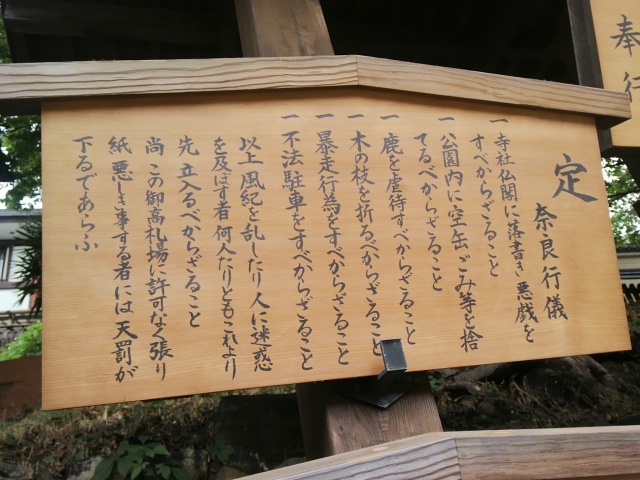 奉行
定
奈良行儀
一 寺社仏閣に落書き 悪戯を
すべからざること
一 公園内に空缶 ごみ等を捨
てるべからざること
一 鹿を虐待すべからざること
一 木の枝を折るべからざること
一 暴走行為をすべからざること
一 不法駐車をすべからざること
以上 風紀を乱したり 人に迷惑
を及ぼす者 何人たりともこれより
先 立入るべからざること
尚 この御高札場に許可なく張り
紙 悪しき事する者には 天罰が
下るであらふ